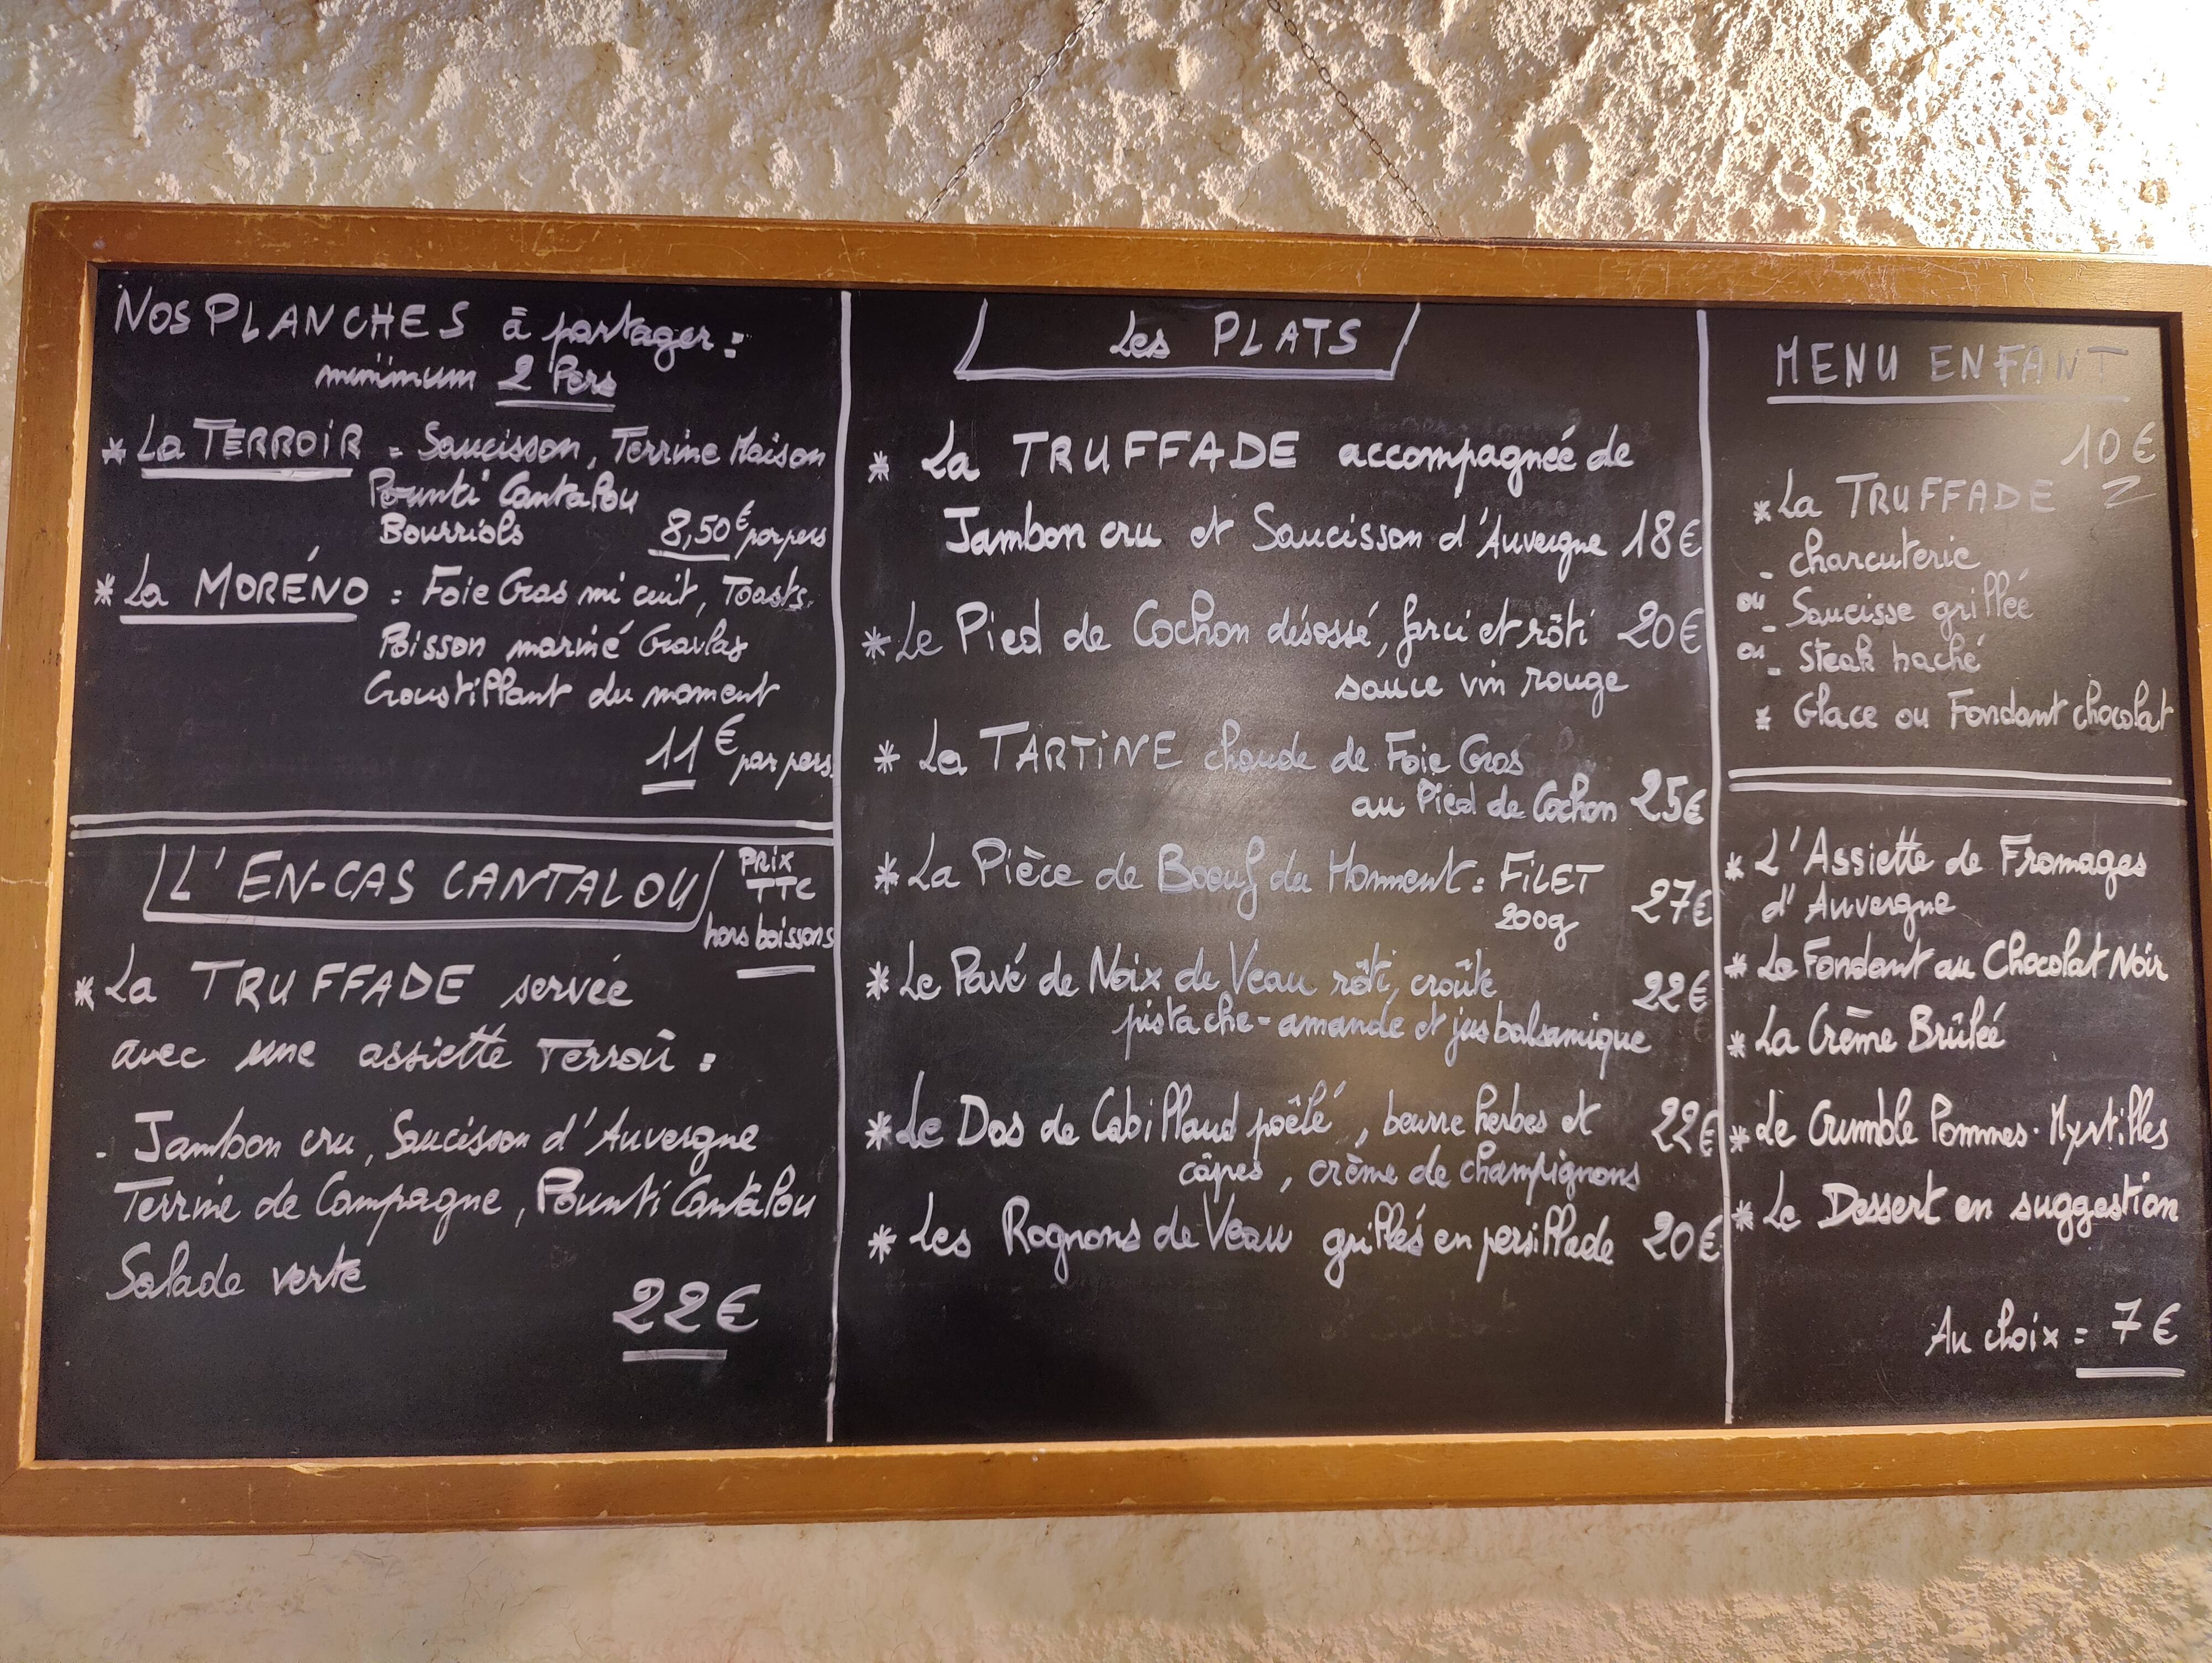 NOS PLANCHES à partager :
minimum 2 Pers
* La TERROIR = Saucisson, Terrine Maison
Pounti Cantalou
Bourriols 8,50€ par pers
* La MORÉNO : Foie Gras mi cuit, Toasts,
Poisson mariné Gravlax
Croustillant du moment
11€ par pers.
L'EN-CAS CANTALOU
PRIX
TTC
hors boissons
* La TRUFFADE servée
avec une assiette Terroir :
- Jambon cru, Saucisson d'Auvergne
Terrine de Campagne, Pounti Cantalou
Salade verte
22€
Les PLATS
* La TRUFFADE accompagnée de
Jambon cru et Saucisson d'Auvergne 18€
* Le Pied de Cochon désossé, farci et rôti 20€
sauce vin rouge
* La TARTINE chaude de Foie Gras
au Pied de Cochon 25€
* La Pièce de Boeuf du Moment : FILET 27€
200g
* Le Pavé de Noix de Veau rôti, croûte 22€
pistache-amande et jus balsamique
* Le Dos de Cabillaud poêlé, beurre herbes et 22€
câpres, crème de champignons
* Les Rognons de Veau grillés en persillade 20€
MENU ENFANT
10€
* La TRUFFADE
- charcuterie
ou - Saucisse grillée
ou - Steak haché
* Glace ou Fondant chocolat
* L'Assiette de Fromages
d'Auvergne
* Le Fondant au Chocolat Noir
* La Crème Brûlée
* Le Crumble Pommes-Myrtilles
* Le Dessert en suggestion
Au choix = 7€